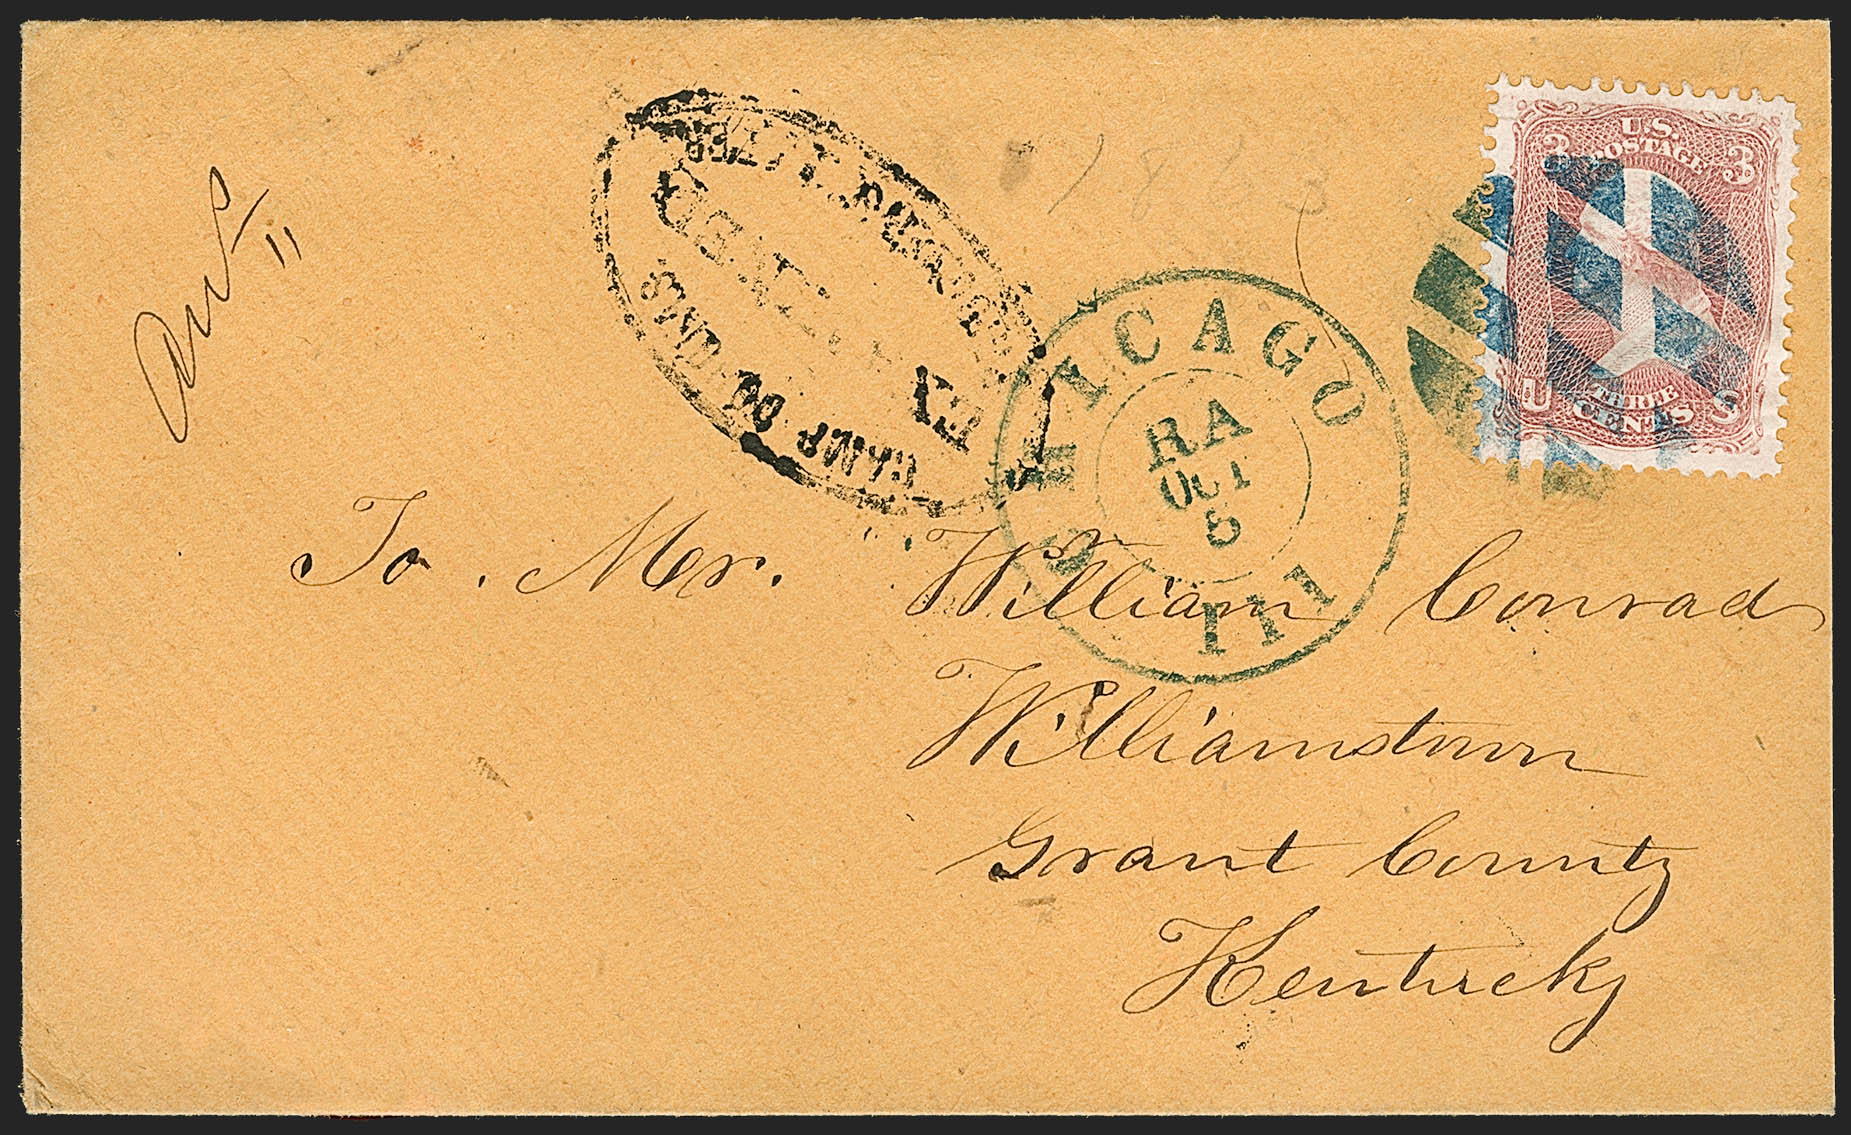 Ans
U.S.
POSTAGE
3 3
U S
THREE
CENTS
PRISONER'S LETTER
EXAMINED
CAMP DOUGLAS
CHICAGO
RA
OCT
5
Ill
To Mr. William Conrad
Williamstown
Grant County
Kentucky